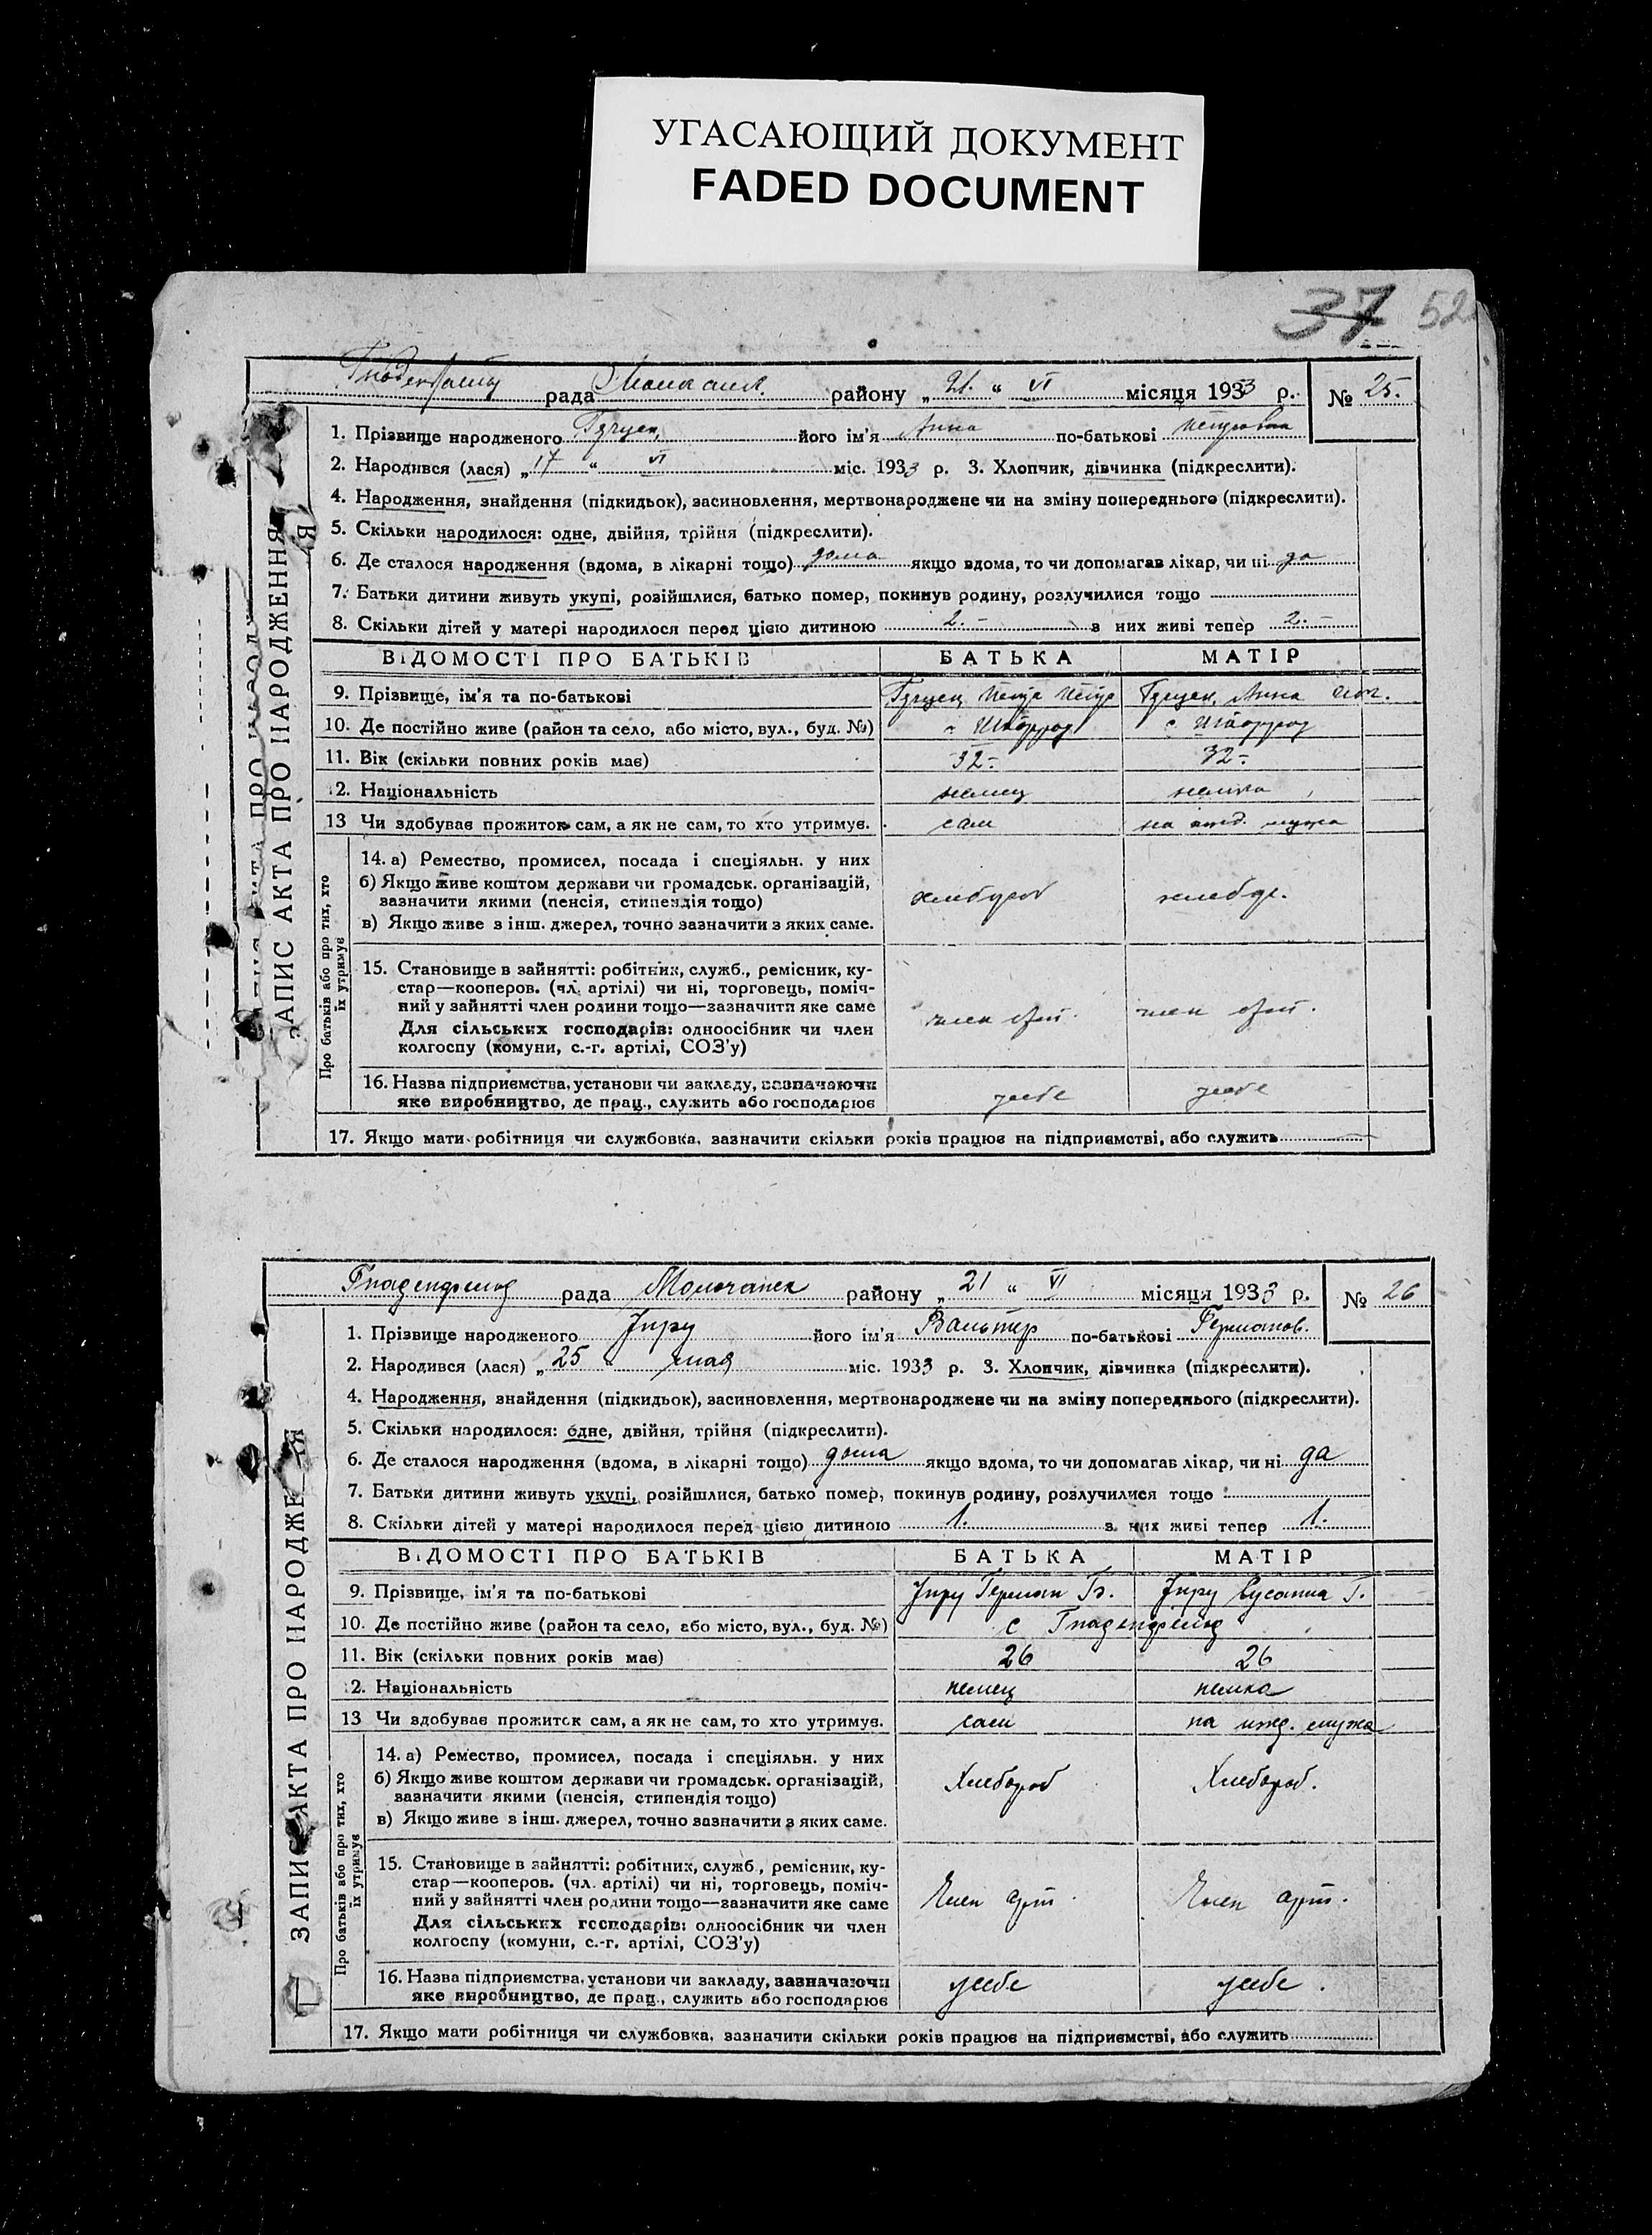 УГАСАЮЩИЙ ДОКУМЕНТ
FADED DOCUMENT
37 52
рада району „21.“ VI місяця 1933 р. № 25.
ЗАПИС АКТА ПРО НАРОДЖЕННЯ
1. Прізвище народженого його ім'я Анна по-батькові Петровна
2. Народився (лася) „17“ VI міс. 1933 р. 3. Хлопчик, дівчинка (підкреслити).
4. Народження, знайдення (підкидьок), засиновлення, мертвонароджене чи на зміну попереднього (підкреслити).
5. Скільки народилося: одне, двійня, трійня (підкреслити).
6. Де сталося народження (вдома, в лікарні тощо) дома якщо вдома, то чи допомагав лікар, чи ні да
7. Батьки дитини живуть укупі, розійшлися, батько помер, покинув родину, розлучилися тощо
8. Скільки дітей у матері народилося перед цією дитиною 2.– з них живі тепер 2.–
ВІДОМОСТІ ПРО БАТЬКІВ БАТЬКА МАТІР
9. Прізвище, ім'я та по-батькові Петр Петр Анна
10. Де постійно живе (район та село, або місто, вул., буд. №)
11. Вік (скільки повних років має) 32– 32–
12. Національність немец немка
13 Чи здобуває прожиток сам, а як не сам, то хто утримує. сам на ижд. мужа
Про батьків або про тих, хто їх утримує
14. а) Ремество, промисел, посада і спеціяльн. у них
б) Якщо живе коштом держави чи громадськ. організацій,
зазначити якими (пенсія, стипендія тощо)
в) Якщо живе з інш. джерел, точно зазначити з яких саме.
15. Становище в зайнятті: робітник, служб., ремісник, ку-
стар—кооперов. (чл. артілі) чи ні, торговець, поміч-
ний у зайнятті член родини тощо—зазначити яке саме
Для сільських господарів: одноосібник чи член член арт. член арт.
колгоспу (комуни, с.-г. артілі, СОЗ'у)
16. Назва підприємства, установи чи закладу, зазначаючи
яке виробництво, де прац., служить або господарює
17. Якщо мати робітниця чи службовка, зазначити скільки років працює на підприємстві, або служить
Гнаденфельд рада Молочанск району „21“ VI місяця 1933 р. № 26
ЗАПИС АКТА ПРО НАРОДЖЕННЯ
1. Прізвище народженого його ім'я Вальтер по-батькові Германов.
2. Народився (лася) „25 мая міс. 1933 р. 3. Хлопчик, дівчинка (підкреслити).
4. Народження, знайдення (підкидьок), засиновлення, мертвонароджене чи на зміну попереднього (підкреслити).
5. Скільки народилося: одне, двійня, трійня (підкреслити).
6. Де сталося народження (вдома, в лікарні тощо) дома якщо вдома, то чи допомагав лікар, чи ні да
7. Батьки дитини живуть укупі, розійшлися, батько помер, покинув родину, розлучилися тощо
8. Скільки дітей у матері народилося перед цією дитиною 1. з них живі тепер 1.
ВІДОМОСТІ ПРО БАТЬКІВ БАТЬКА МАТІР
9. Прізвище, ім'я та по-батькові Герман Сусанна Г.
10. Де постійно живе (район та село, або місто, вул., буд. №) с Гнаденфельд
11. Вік (скільки повних років має) 26 26
12. Національність немец немка
13 Чи здобуває прожиток сам, а як не сам, то хто утримує. сам на ижд. мужа
Про батьків або про тих, хто їх утримує
14. а) Ремество, промисел, посада і спеціяльн. у них
б) Якщо живе коштом держави чи громадськ. організацій, Хлебороб Хлебороб.
зазначити якими (пенсія, стипендія тощо)
в) Якщо живе з інш. джерел, точно зазначити з яких саме.
15. Становище в зайнятті: робітник, служб., ремісник, ку-
стар—кооперов. (чл. артілі) чи ні, торговець, поміч-
ний у зайнятті член родини тощо—зазначити яке саме Член арт. Член арт.
Для сільських господарів: одноосібник чи член
колгоспу (комуни, с.-г. артілі, СОЗ'у)
16. Назва підприємства, установи чи закладу, зазначаючи
яке виробництво, де прац., служить або господарює
17. Якщо мати робітниця чи службовка, зазначити скільки років працює на підприємстві, або служить